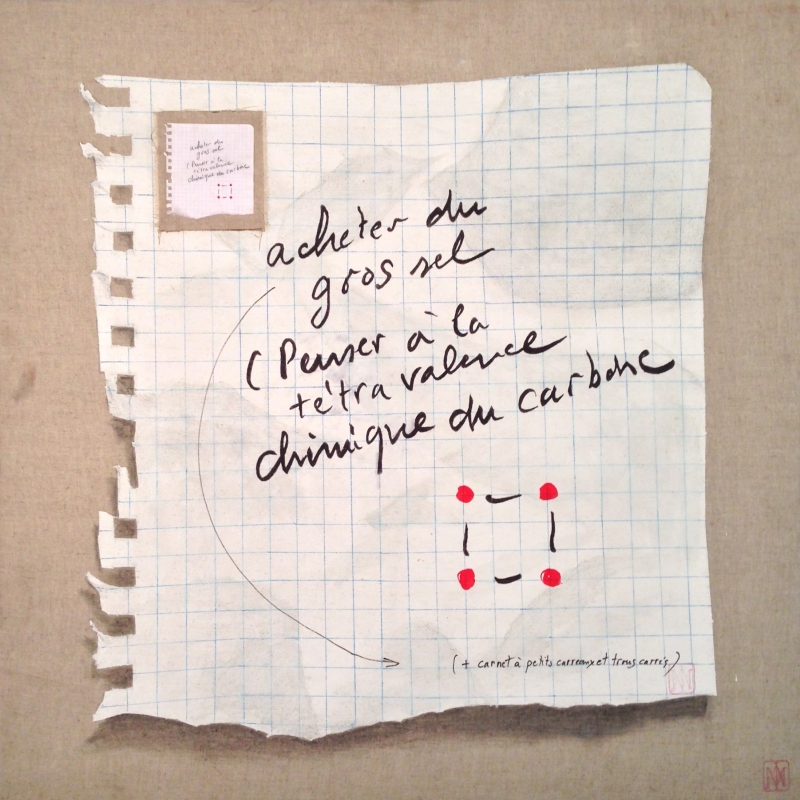 acheter du
gros sel
(Penser à la
tétravalence
chimique du carbone
acheter du
gros sel
(Penser à la
tétravalence
chimique du carbone
(+ carnet à petits carreaux et trous carrés)